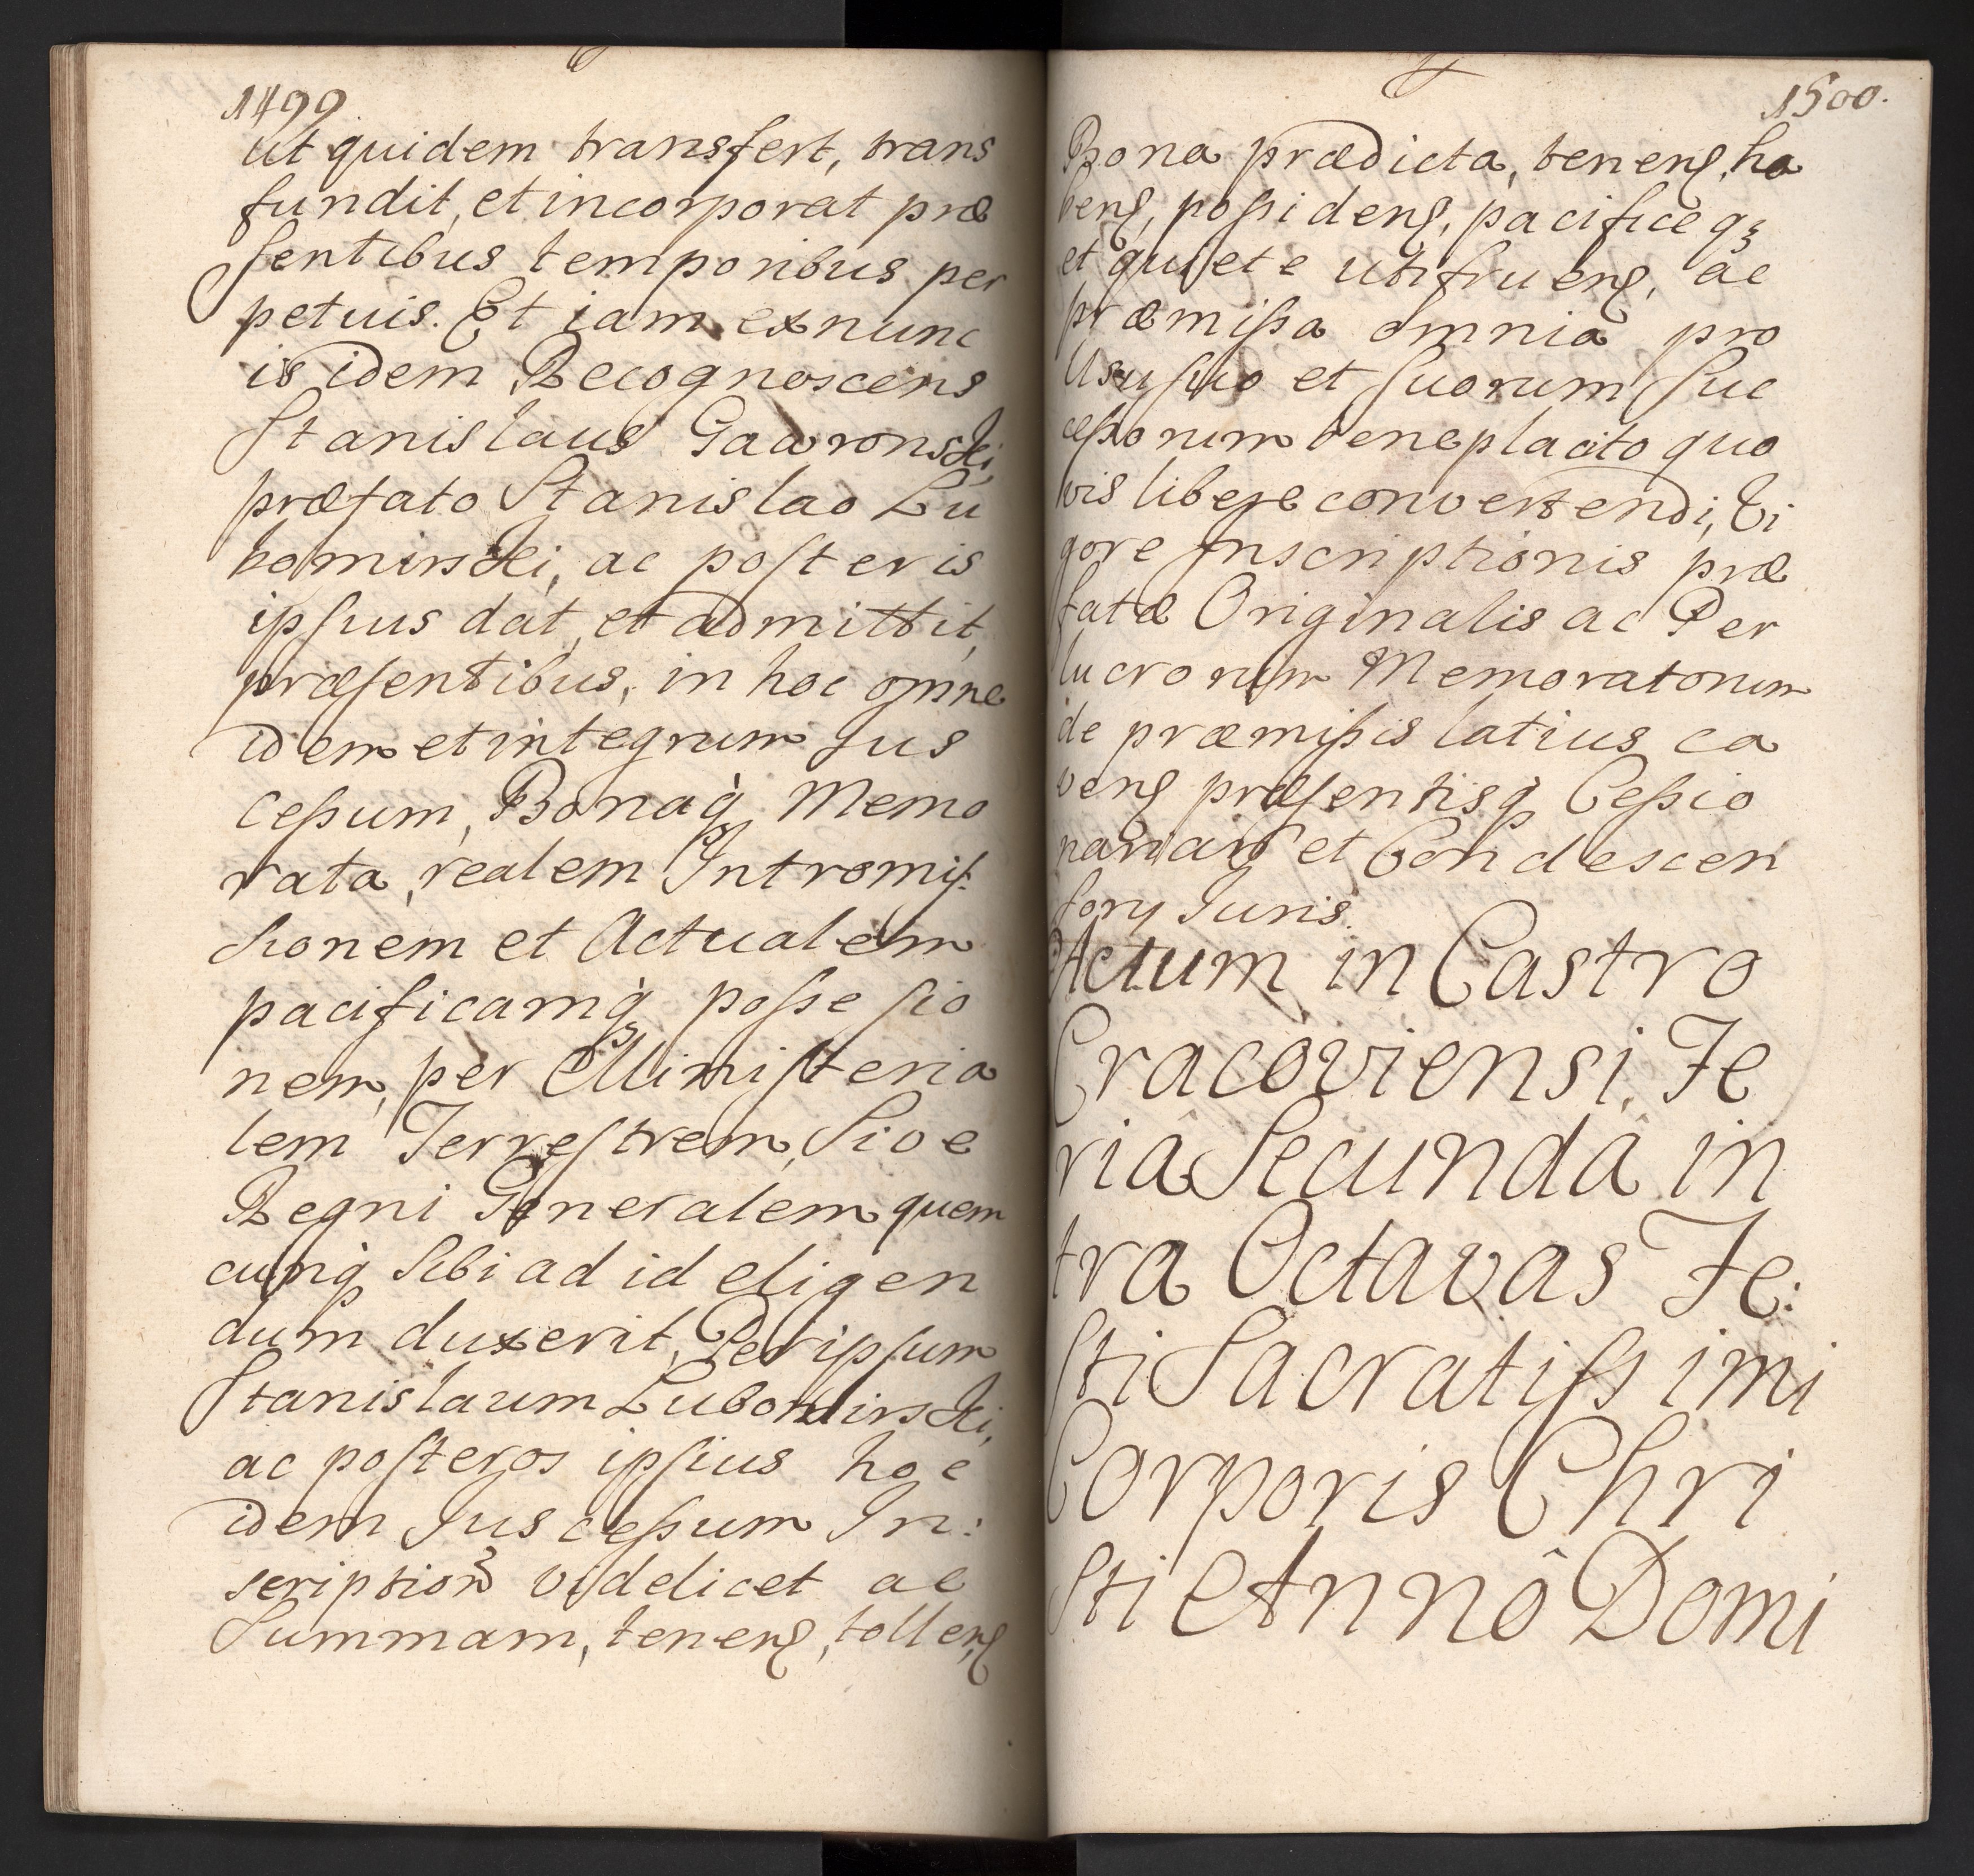 1499
ut quidem transfert, trans
fundit, et incorporat præ
sentibus temporibus per
petuis. Et iam ex nunc
is idem Recognoscens
Stanislaus Gawronski
præfato Stanislao Lu
bomirski, ac posteris
ipsius dat, et admittit,
præsentibus, in hoc omne
idem et integrum Jus
cessum, Bonaq₃ Memo
rata, realem Intromis:
sionem et Actualem
pacificamq₃ possessio
nem, per Ministeria
lem Terrestrem, Sive
Regni Generalem quem
cunq₃ sibi ad id eligen
dum duxerit, Per ipsum
Stanislaum Lubomirski,
ac posteros ipsius hoc
idem Jus cessum In:
scription videlicet ac
Summam, tenenꝭ, tollenꝭ
1500.
Bona prædicta, tenenꝭ, ha
benꝭ, possidenꝭ, pacifice q₃
et quiete utifruenꝭ, ac
præmissa omnia pro
Usu suo et suorum suc
cessorum beneplacito quo
vis libere convertendi, Vi
gore Inscriptionis præ
fatæ Originalis ac Per
lucrorum Memoratorum
de præmissis latius ca
venꝭ præsentisq₃ Cessio
et Condescen
sory Juris.
Actum in Castro
Cracoviensi, Fe
riâ Secundâ in
tra Octavas Fe:
sti Sacratissimi
Corporis Chri
sti Annô Domi